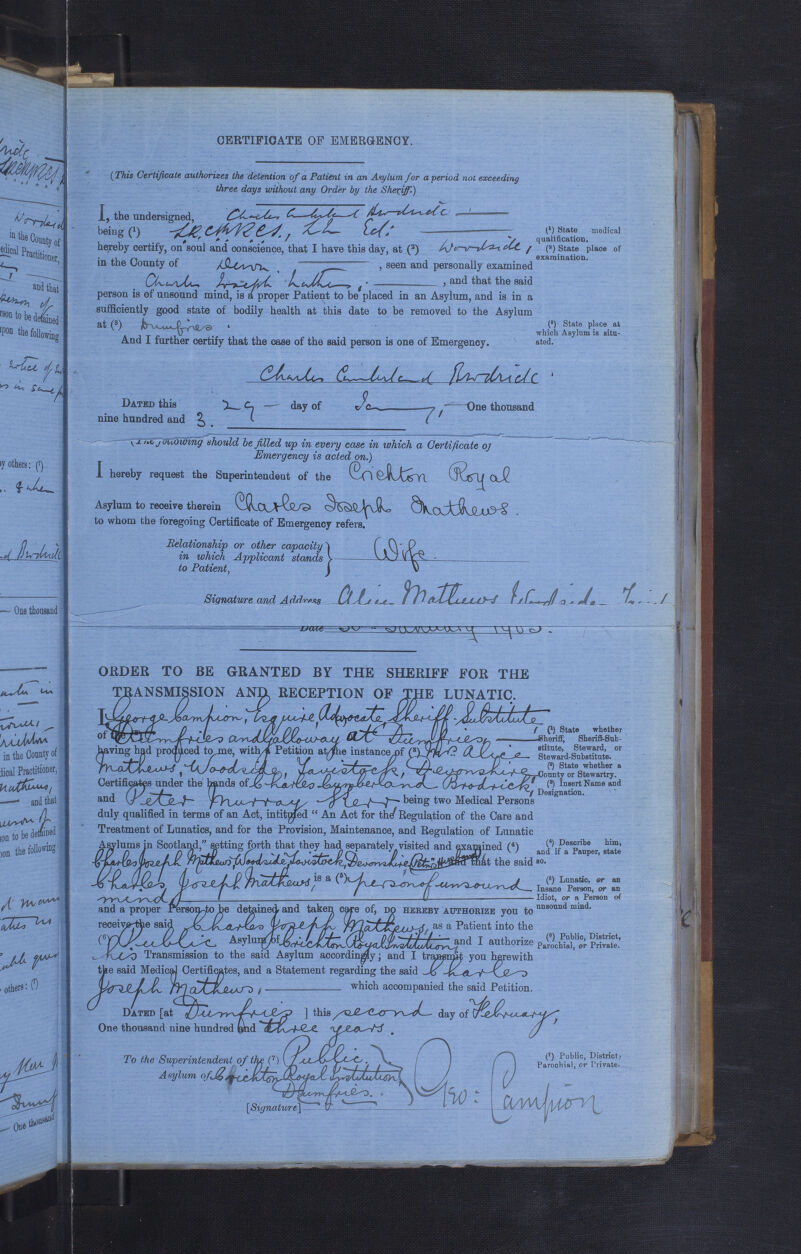 CERTIFICATE OF EMERGENCY.
(This Certificate authorizes the detention of a Patient in an Asylum for a period not exceeding
three days without any Order by the Sheriff.)
I, the undersigned, Charles Cumberland Brodrick
being (¹) L.R.C.P., M.R.C.S., Ed:
hereby certify, on soul and conscience, that I have this day, at (²) Woodside,
in the County of Devon, seen and personally examined
Charles Joseph Mathews, and that the said
person is of unsound mind, is a proper Patient to be placed in an Asylum, and is in a
sufficiently good state of bodily health at this date to be removed to the Asylum
at (³) Dumfries.
And I further certify that the case of the said person is one of Emergency.
(¹) State medical
qualification.
(²) State place of
examination.
(³) State place at
which Asylum is situ-
ated.
Charles Cumberland Brodrick.
DATED this 29 day of Jany, One thousand
nine hundred and 3.
(The following should be filled up in every case in which a Certificate of
Emergency is acted on.)
I hereby request the Superintendent of the Crichton Royal
Asylum to receive therein Charles Joseph Mathews.
to whom the foregoing Certificate of Emergency refers.
Relationship or other capacity
in which Applicant stands } Wife.
to Patient,
Signature and Address Alice Mathews Woodside
Date 30th January 1903.
ORDER TO BE GRANTED BY THE SHERIFF FOR THE
TRANSMISSION AND RECEPTION OF THE LUNATIC.
I George Campion, Esquire, Advocate, Sheriff-Substitute
of Dumfries and Galloway at Dumfries,
having had produced to me, with a Petition at the instance of (³) Mrs. Alice
Mathews, Woodside, Tavistock, Devonshire,
Certificates under the hands of Charles Cumberland Brodrick,
and Peter Murray Kerr being two Medical Persons
duly qualified in terms of an Act, intituled "An Act for the Regulation of the Care and
Treatment of Lunatics, and for the Provision, Maintenance, and Regulation of Lunatic
Asylums in Scotland," setting forth that they had separately visited and examined (⁴)
Charles Joseph Mathews, Woodside, Tavistock, Devonshire, Petrs. Husband and that the said
Charles Joseph Mathews, is a (⁵) person of unsound
mind
and a proper Person to be detained and taken care of, DO HEREBY AUTHORIZE you to
receive the said Charles Joseph Mathews, as a Patient into the
(⁶) Public Asylum of Crichton Royal Institution and I authorize
his Transmission to the said Asylum accordingly; and I transmit you herewith
the said Medical Certificates, and a Statement regarding the said Charles
Joseph Mathews, which accompanied the said Petition.
DATED [at Dumfries ] this second day of February,
One thousand nine hundred and three years.
To the Superintendent of the (⁷) Public
Asylum of Crichton Royal Institution
Dumfries.
[Signature] Geo: Campion
(¹) State whether
Sheriff, Sheriff-Sub-
stitute, Steward, or
Steward-Substitute.
(²) State whether a
County or Stewartry.
(³) Insert Name and
Designation.
(⁴) Describe him,
and if a Pauper, state
so.
(⁵) Lunatic, or an
Insane Person, or an
Idiot, or a Person of
unsound mind.
(⁶) Public, District,
Parochial, or Private.
(⁷) Public, District,
Parochial, or Private.
in the County of
edical Practitioner,
and that
person of
son to be detained
upon the following
notice of
by others: (¹)
One thousand
in the County of
dical Practitioner,
Mathews,
and that
son to be detained
on the following
others: (⁷)
One thousand